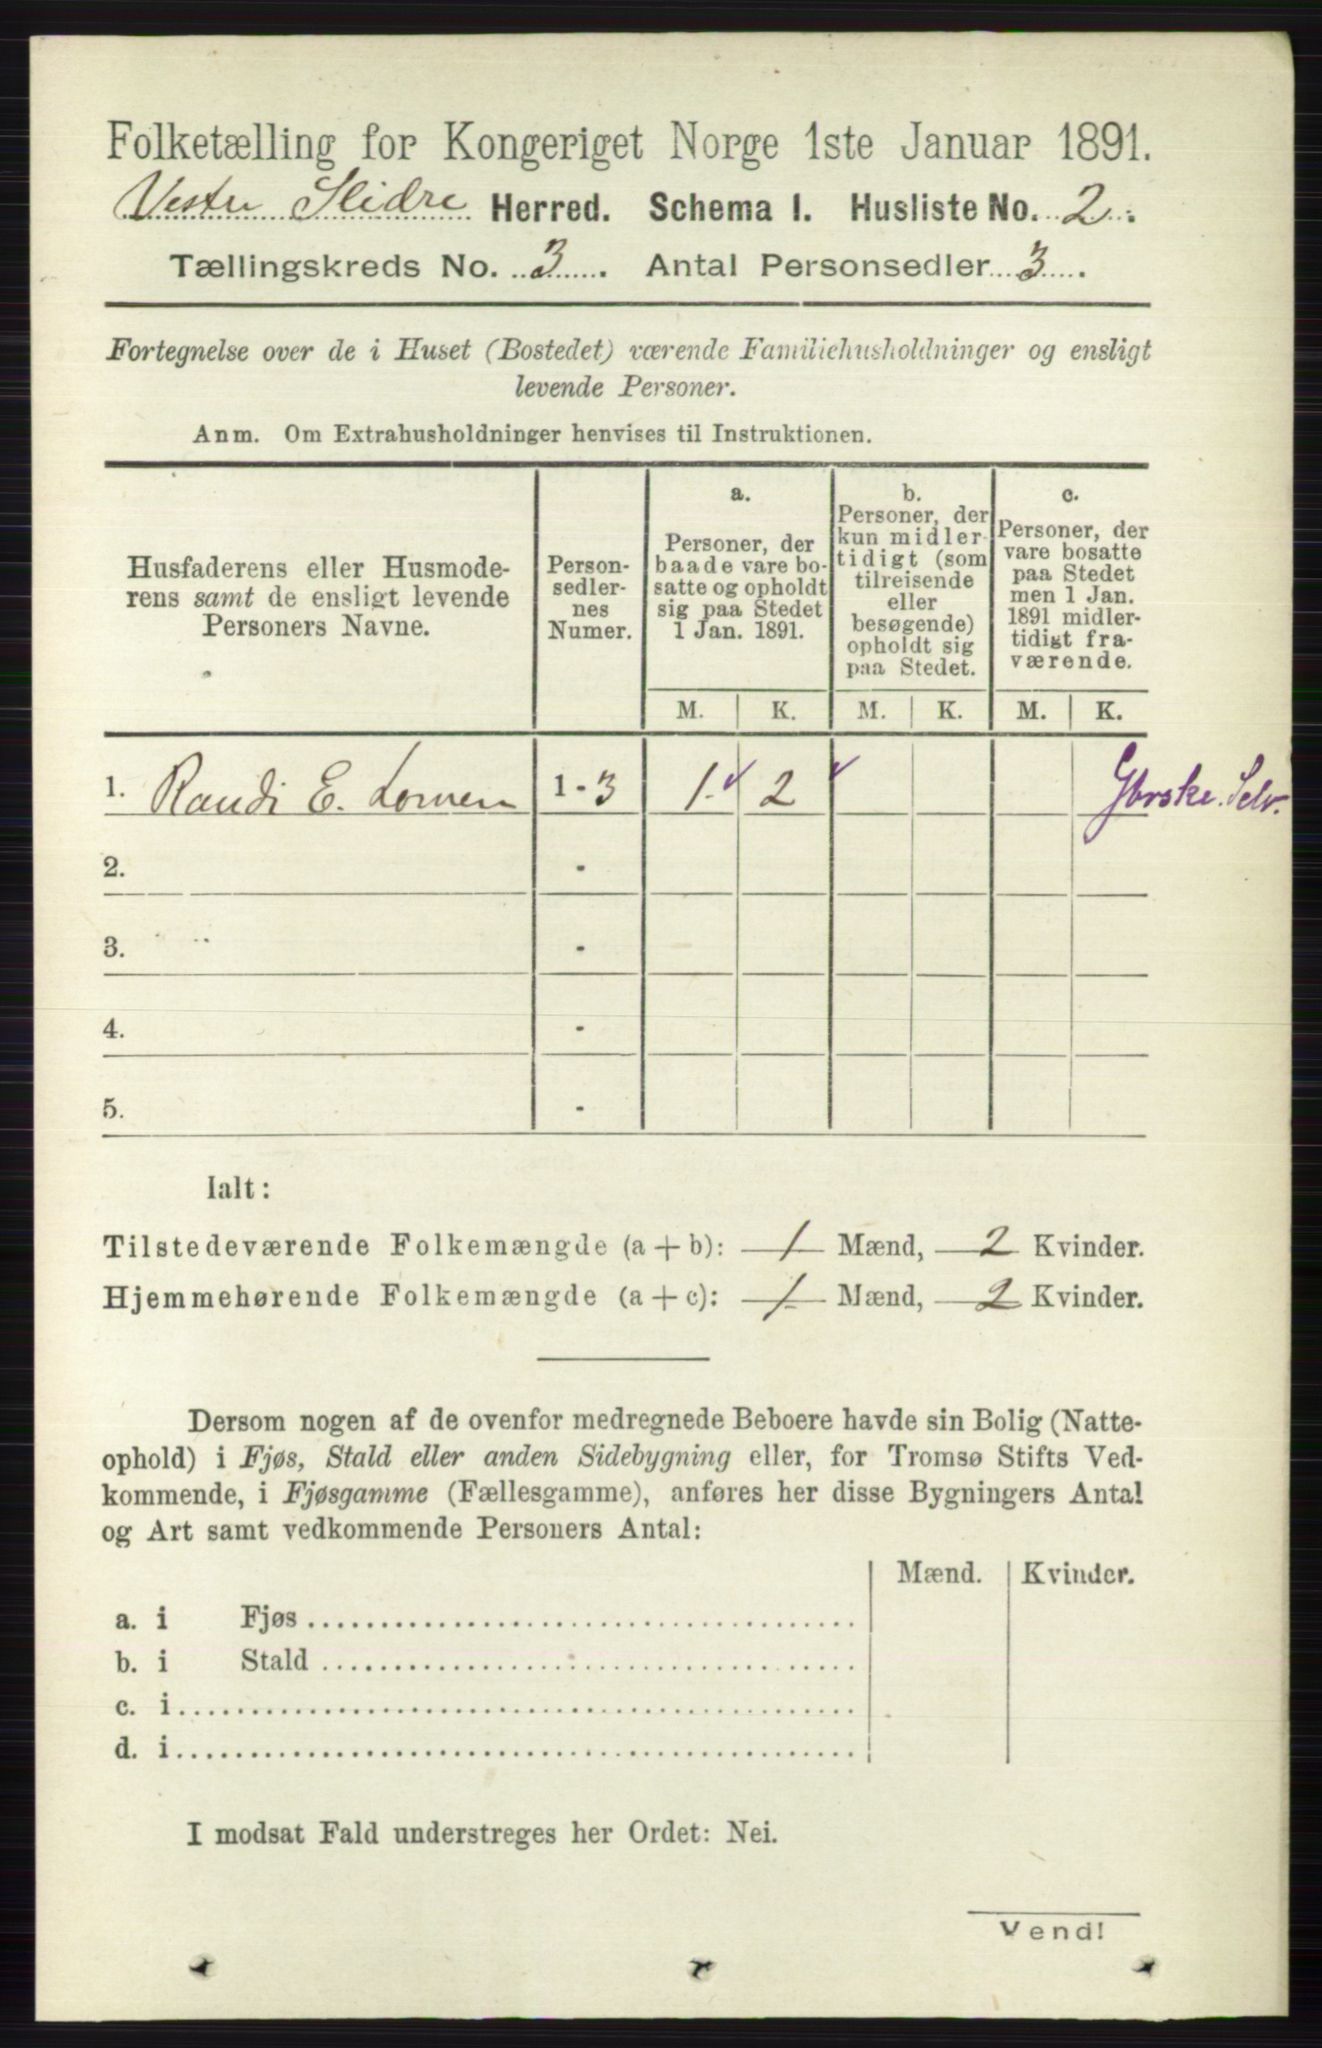 Folketælling for Kongeriget Norge 1ste Januar 1891.
Vestre Slidre Herred. Schema I. Husliste No. 2.
Tællingskreds No. 3. Antal Personsedler 3.
Fortegnelse over de i Huset (Bostedet) værende Familiehusholdninger og ensligt
levende Personer.
Anm. Om Extrahusholdninger henvises til Instruktionen.
Husfaderens eller Husmode-
rens samt de ensligt levende
Personers Navne.
Person-
sedler-
nes
Numer.
a.
Personer, der
baade vare bo-
satte og opholdt
sig paa Stedet
1 Jan. 1891.
b.
Personer, der
kun midler-
tidigt (som
tilreisende
eller
besøgende)
opholdt sig
paa Stedet.
c.
Personer, der
vare bosatte
paa Stedet
men 1 Jan.
1891 midler-
tidigt fra-
værende.
M. K. M. K. M. K.
1. Randi E. Lomen 1 - 3 1. 2 Selv.
2. -
3. -
4. -
5. -
Ialt:
Tilstedeværende Folkemængde (a + b): 1 Mænd, 2 Kvinder.
Hjemmehørende Folkemængde (a + c): 1 Mænd, 2 Kvinder.
Dersom nogen af de ovenfor medregnede Beboere havde sin Bolig (Natte-
ophold) i Fjøs, Stald eller anden Sidebygning eller, for Tromsø Stifts Ved-
kommende, i Fjøsgamme (Fællesgamme), anføres her disse Bygningers Antal
og Art samt vedkommende Personers Antal:
Mænd. Kvinder.
a. i Fjøs
b. i Stald
c. i
d. i
I modsat Fald understreges her Ordet: Nei.
Vend!